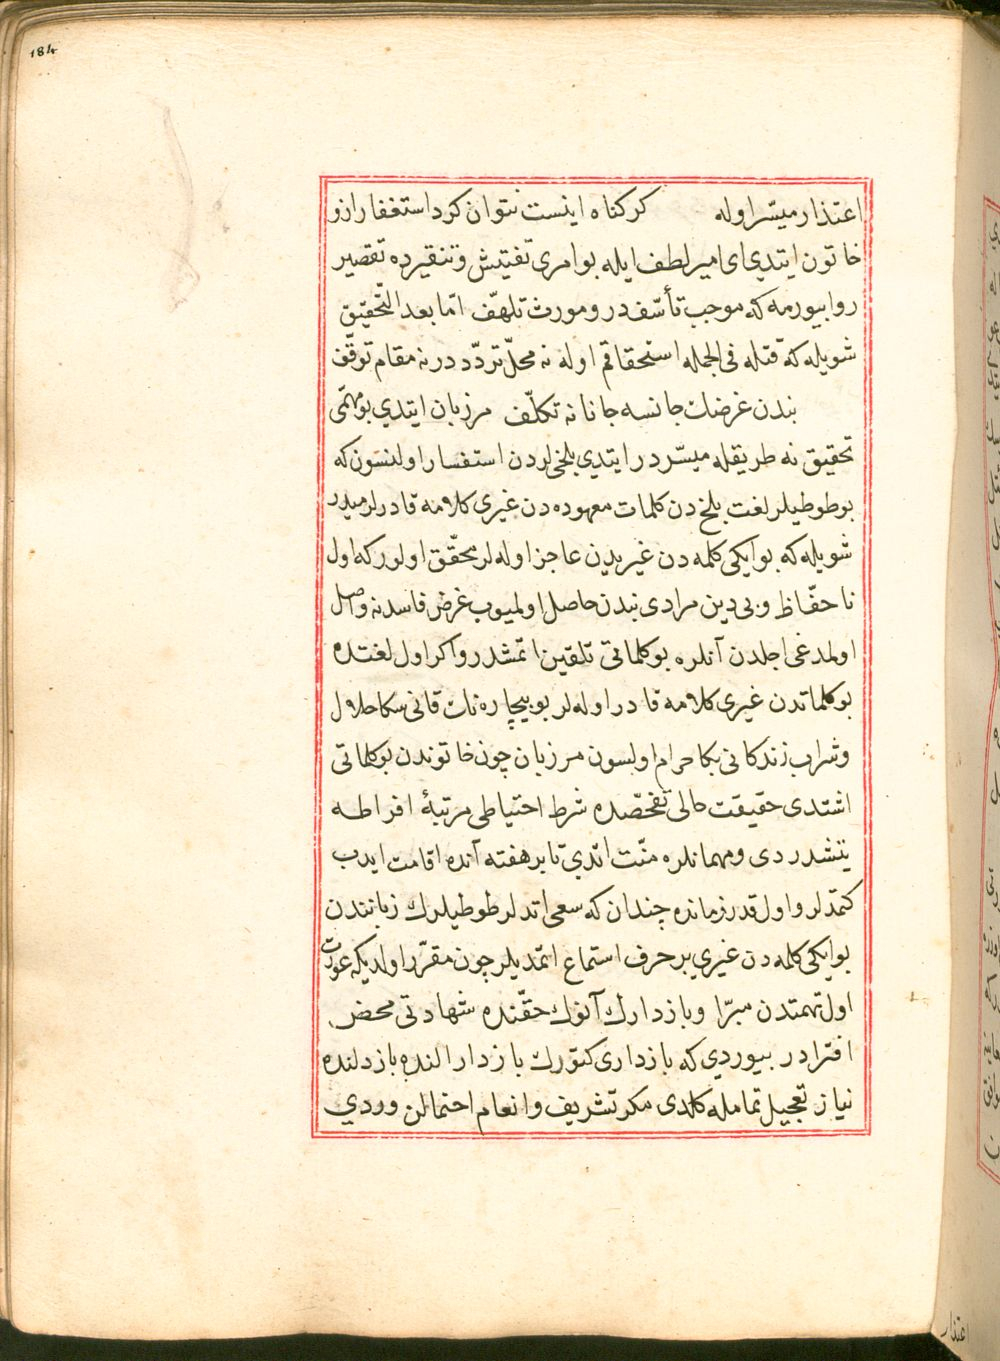 184
اعتذار ميسّر اوله كر كناه اينست نتوان كرد استغفار ازو
خاتون ايتدي اى امير لطف ايله بو امرى تفتيش و تنقيرده تقصير
روا بيورمه كه موجب تأسّف در و مورث تلهّف امّا بعد التّحقيق
شويله كه قتله فى الجمله استحقاقم اوله نه محلّ تردّد در نه مقام توقّف
نبدن غرضك جانسه جانا نه تكلّف مرزبان ايتدي بو مهمّى
تحقيق نه طريقله ميسّر در ايتدي بلخى لردن استفسار اولنسون كه
بو طوطيلر لغت بلخ دن كلمات معهوده دن غيرى كلامه قادرلر ميدر
شويله كه بو ايكى كلمه دن غيريدن عاجز اوله لر محقّق اولور كه اول
نا حفّاظ و بى دين مرادى نبدن حاصل اولميوب غرض فاسدنه واصل
اولمدغى اجلدن آنلره بو كلماتى تلقين اتمشدر و اكر اول لغتده
بو كلماتدن غيرى كلامه قادر اوله لر بو بيچاره نك قانى سكا حلال
و شراب زندكانى بكا حرام اولسون مرزبان چون خاتوندن بو كلماتى
اشتدى حقيقت حالى تفحّصده شرط احتياطى مرتبۀ افراطه
يتشدردى و مهمانلره منّت اتدي تا بر هفته آنده اقامت ايدب
كتمدلر و اول قدر زمانده چندان كه سعى اتدلر طوطيلرك زباننندن
بو ايكى كلمه دن غيري بر حرف استماع اتمديلر چون مقرّر اولديكه عورت
اول تهمتدن مبرّا و بازدارك آنوك حقّنده شهادتى محض
افترادر بيوردي كه بازدارى كتورك بازدار النده باز دلنده
نياز تعجيل تمامله كلدى مكر تشريف و انعام احتمالن وردي
اعتذار